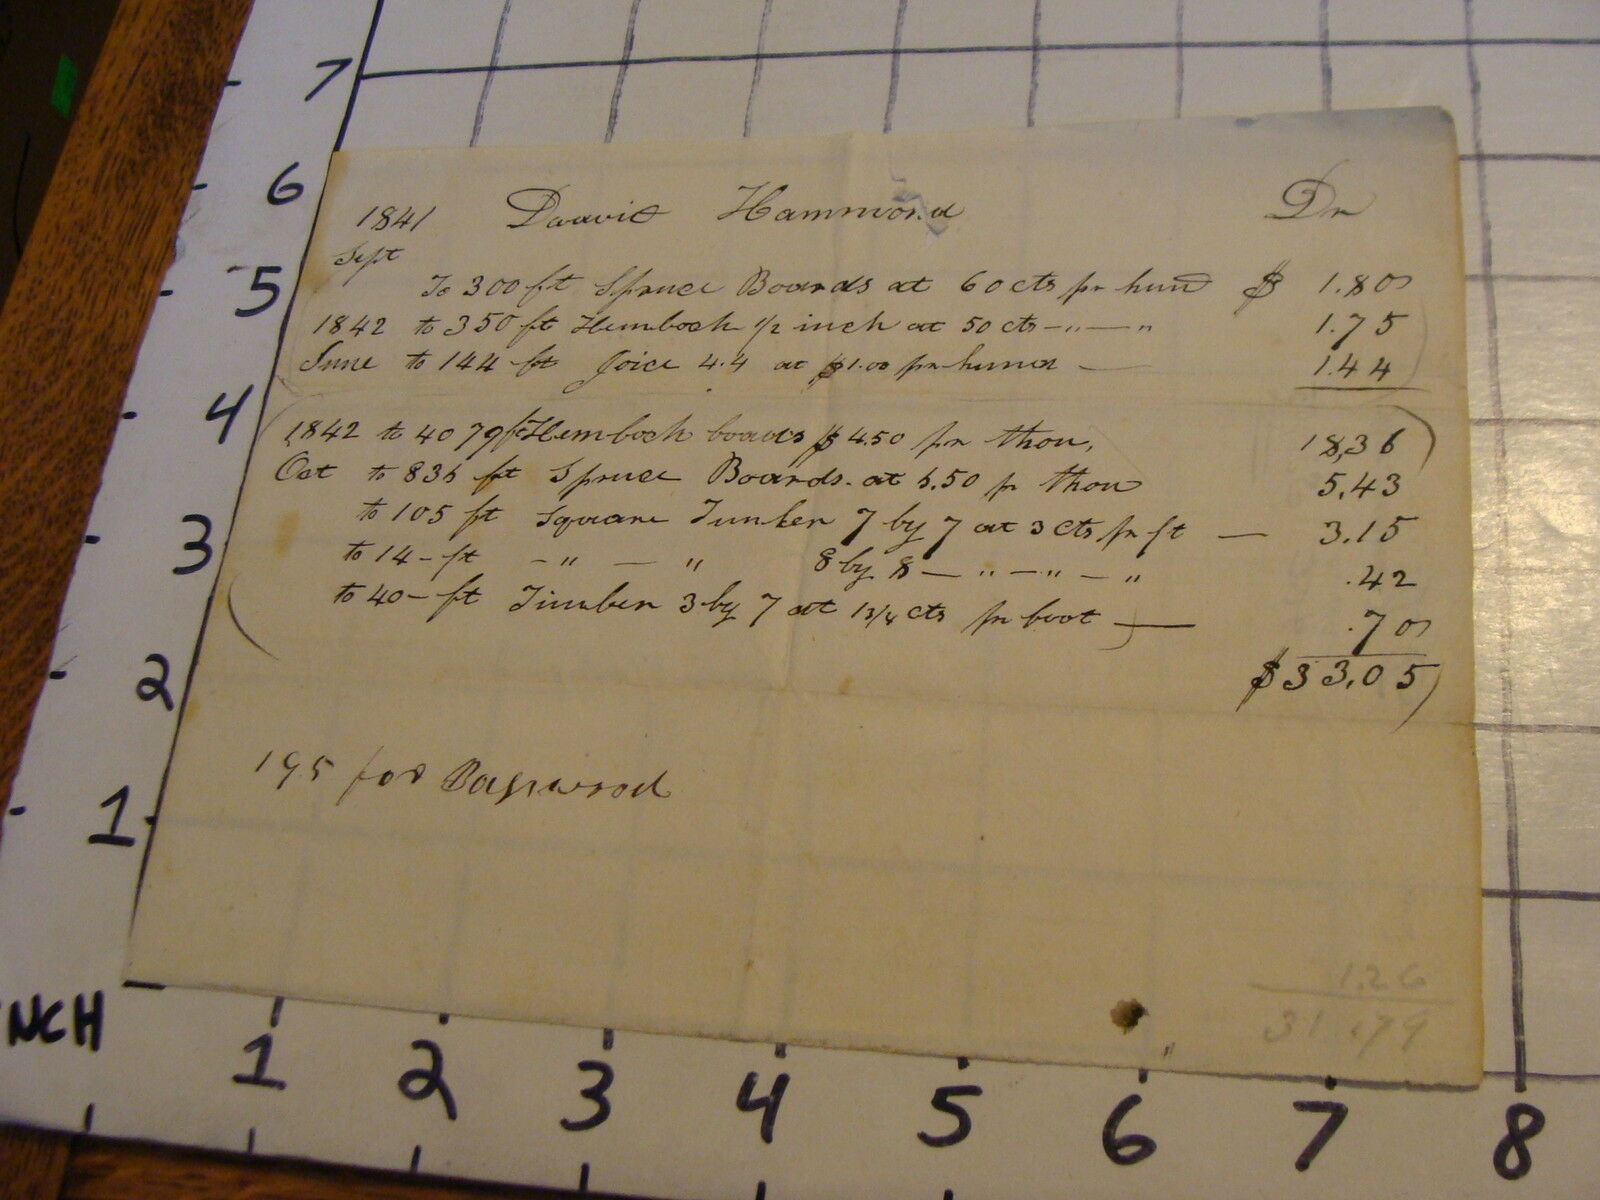 7
6
5
4
3
2
1
1841 Daavid Hammond Dr
Sept
To 300 ft Spruce Boards at 60 cts pr hund $ 1.80
1842 to 350 ft Hemlock 1/2 inch at 50 cts - " - " 1.75
June to 144 ft Joice 4.4 at $1.00 pr hund 1.44
1842 to 4079 ft Hemlock boards $4.50 pr thou, 18,36
Oct to 836 ft Spruce Boards. at 6.50 pr thou 5,43
to 105 ft Square Timber 7 by 7 at 3 cts pr ft — 3.15
to 14 - ft - " - " 8 by 8 - " - " - " .42
to 40 - ft Timber 3 by 7 at 1 3/4 cts pr foot — .70
$33,05
195 for Basswood
1.26
31.79
INCH
1 2 3 4 5 6 7 8